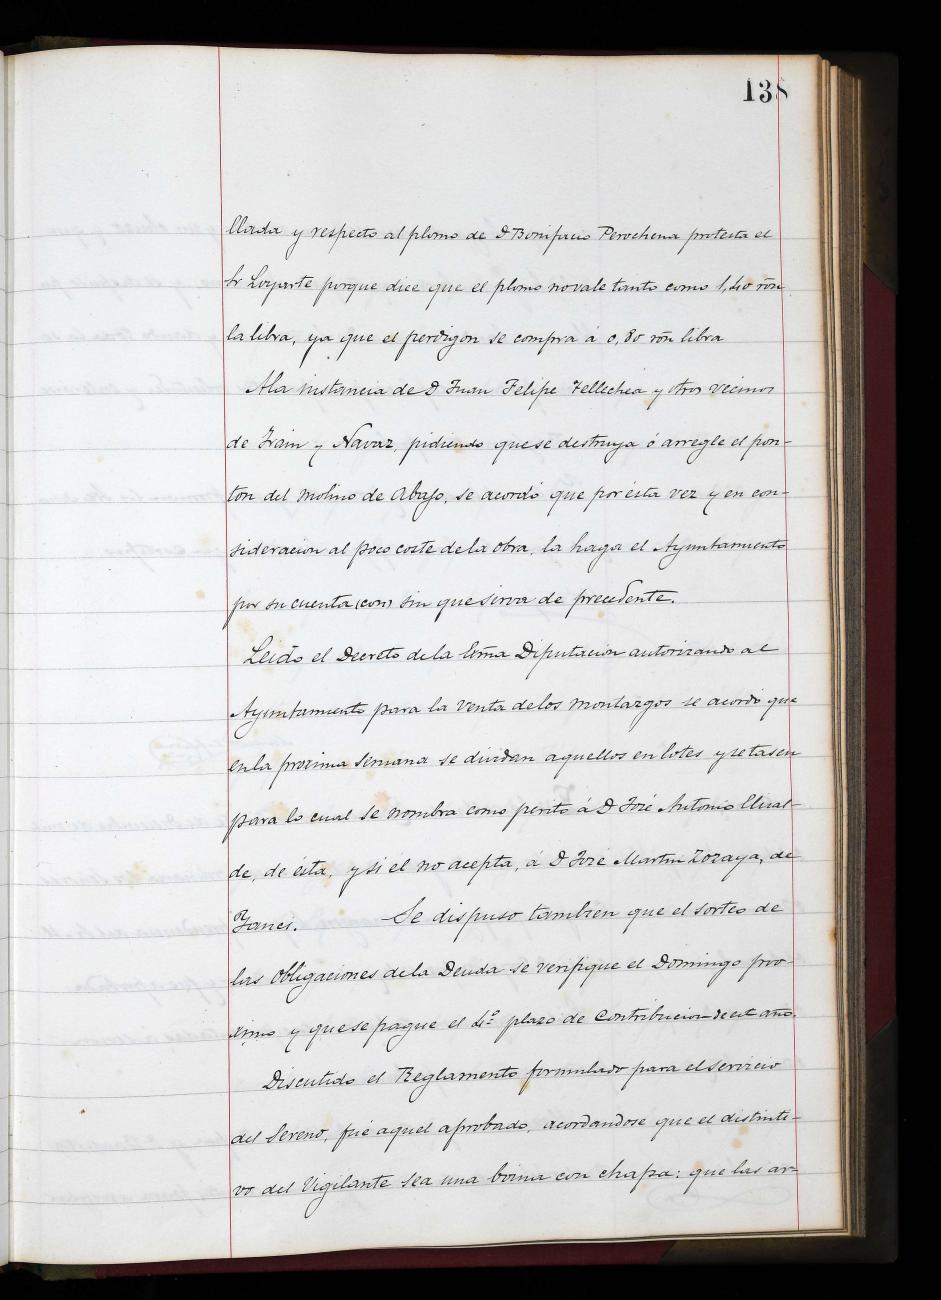 138
llada y respecto al plomo de D Bonifacio Perochena protesta el
Sr Loyarte porque dice que el plomo no vale tanto como 1,40 rõn
la libra, ya que el perdigon se compra á 0,80 rõn libra
A la instancia de D Juan Felipe Tellechea y otros vecinos
de Irain y Navaz, pidiendo que se destruya ó arregle el pon-
tón del molino de Abajo, se acordó que por ésta vez y en con-
sideracion al poco coste de la obra, la haga el Ayuntamiento
por su cuenta (con) sin que sirva de precedente.
Leido el Decreto de la Ecma Diputacion autorizando al
Ayuntamiento para la venta de los montazgos se acordó que
en la proxima semana se dividan aquellos en lotes y se tasen
para lo cual se nombra como perito á D José Antonio Elizal-
de, de ésta, y si el no acepta, á D José Martin Zozaya, de
Yanci. Se dispuso tambien que el sorteo de
las Obligaciones de la Deuda se verifique el Domingo pro-
ximo y que se pague el 4º plazo de Contribucion de est año.
Discutido el Reglamento formulado para el servicio
del Sereno, fué aquel aprobado, acordandose que el distinti-
vo del Vigilante sea una boina con chapa: que las ar-